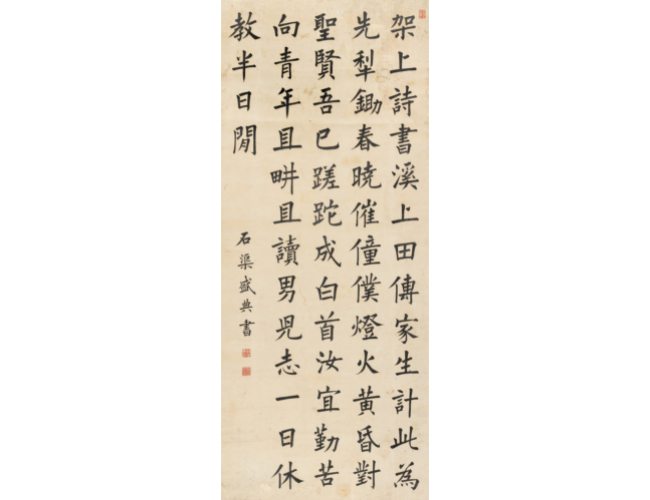 架上詩書溪上田傳家生計此為
先犁鋤春曉催僮僕燈火黃昏對
聖賢吾已蹉跎成白首汝宜勤苦
向青年且畊且讀男兒志一日休
教半日閒
石渠盛典書